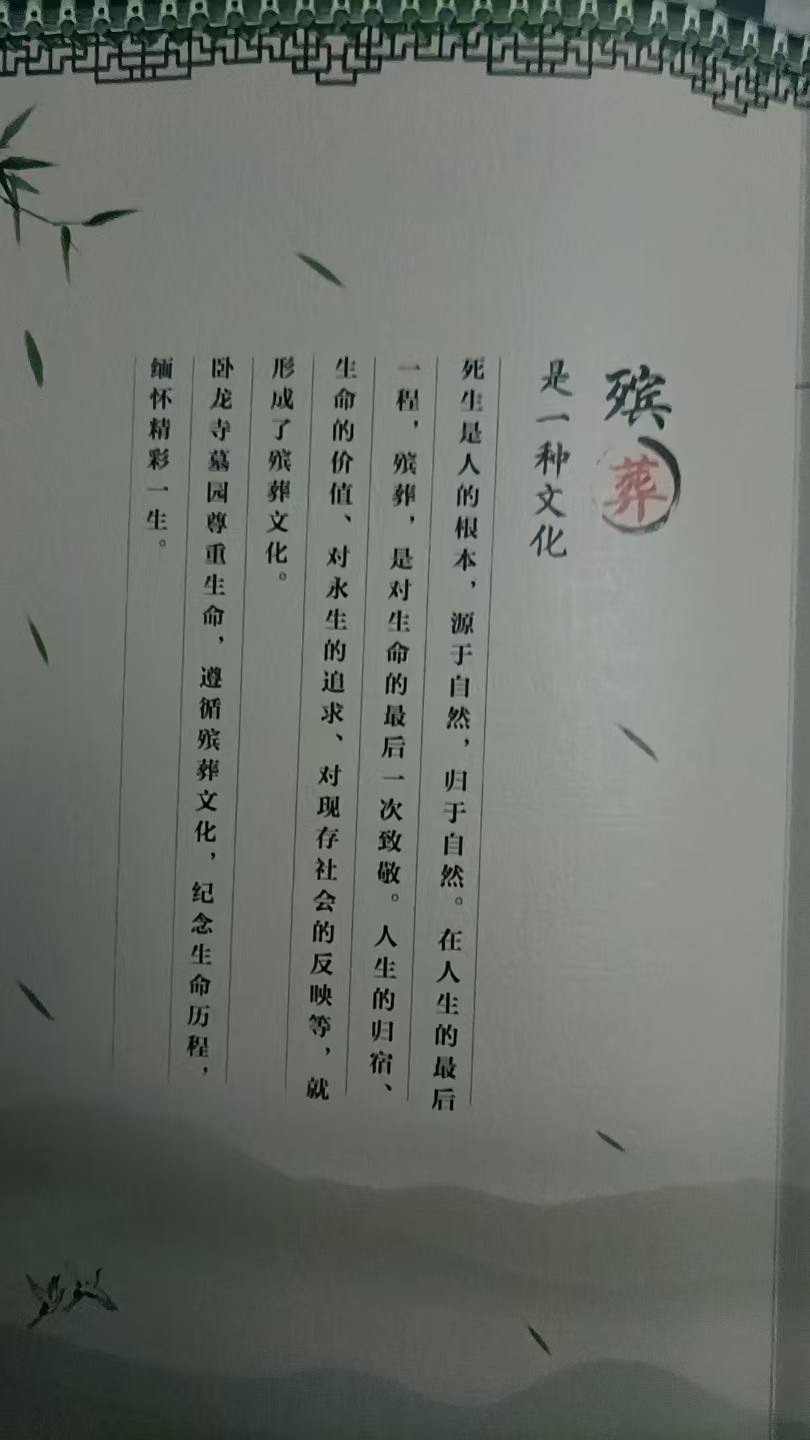 殡葬
是一种文化
死生是人的根本，源于自然，归于自然。在人生的最后
一程，殡葬，是对生命的最后一次致敬。人生的归宿、
生命的价值、对永生的追求、对现存社会的反映等，就
形成了殡葬文化。
卧龙寺墓园尊重生命，遵循殡葬文化，纪念生命历程，
缅怀精彩一生。